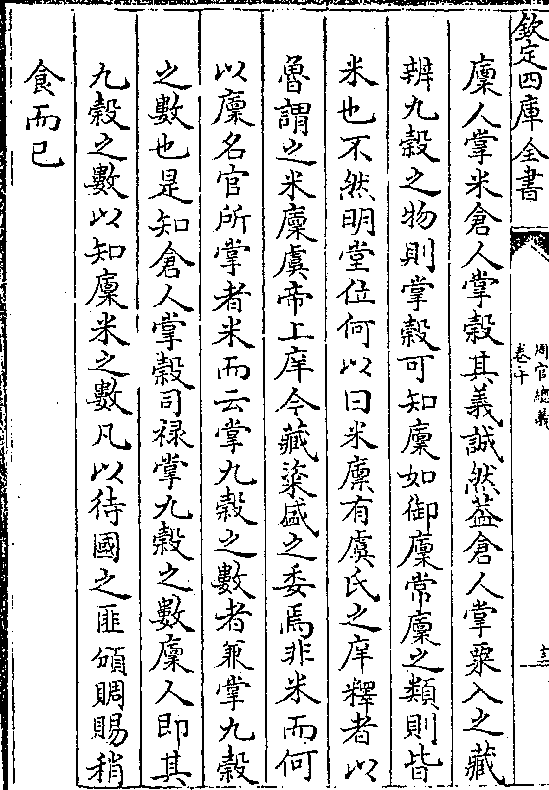 欽定四庫全書
周官總義
卷十
十二
廩人掌米倉人掌穀其義誠然葢倉人掌粟入之藏
辨九穀之物則掌穀可知廩如御廩常廩之類則皆
米也不然明堂位何以曰米廩有虞氏之庠釋者以
魯謂之米廩虞帝上庠今藏粢盛之委焉非米而何
以廩名官所掌者米而云掌九穀之數者兼掌九穀
之數也是知倉人掌穀司禄掌九穀之數廩人即其
九穀之數以知廩米之數凡以待國之匪頒賙賜稍
食而已